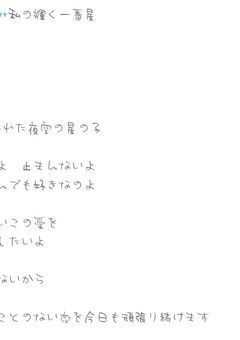 私の輝く一番星
われた夜空の星の子
よ 止まんないよ
んでも好きなのよ
いこの愛を
したいよ
ないから
ことのない恋を今日も頑張り続けます